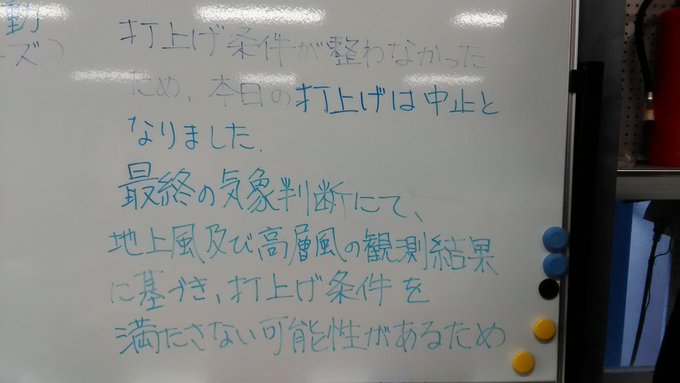 動
ーズ)
打上げ条件が整わなかった
ため、本日の打上げは中止と
なりました.
最終の気象判断にて、
地上風及び高層風の観測結果
に基づき、打上げ条件を
満たさない可能性があるため